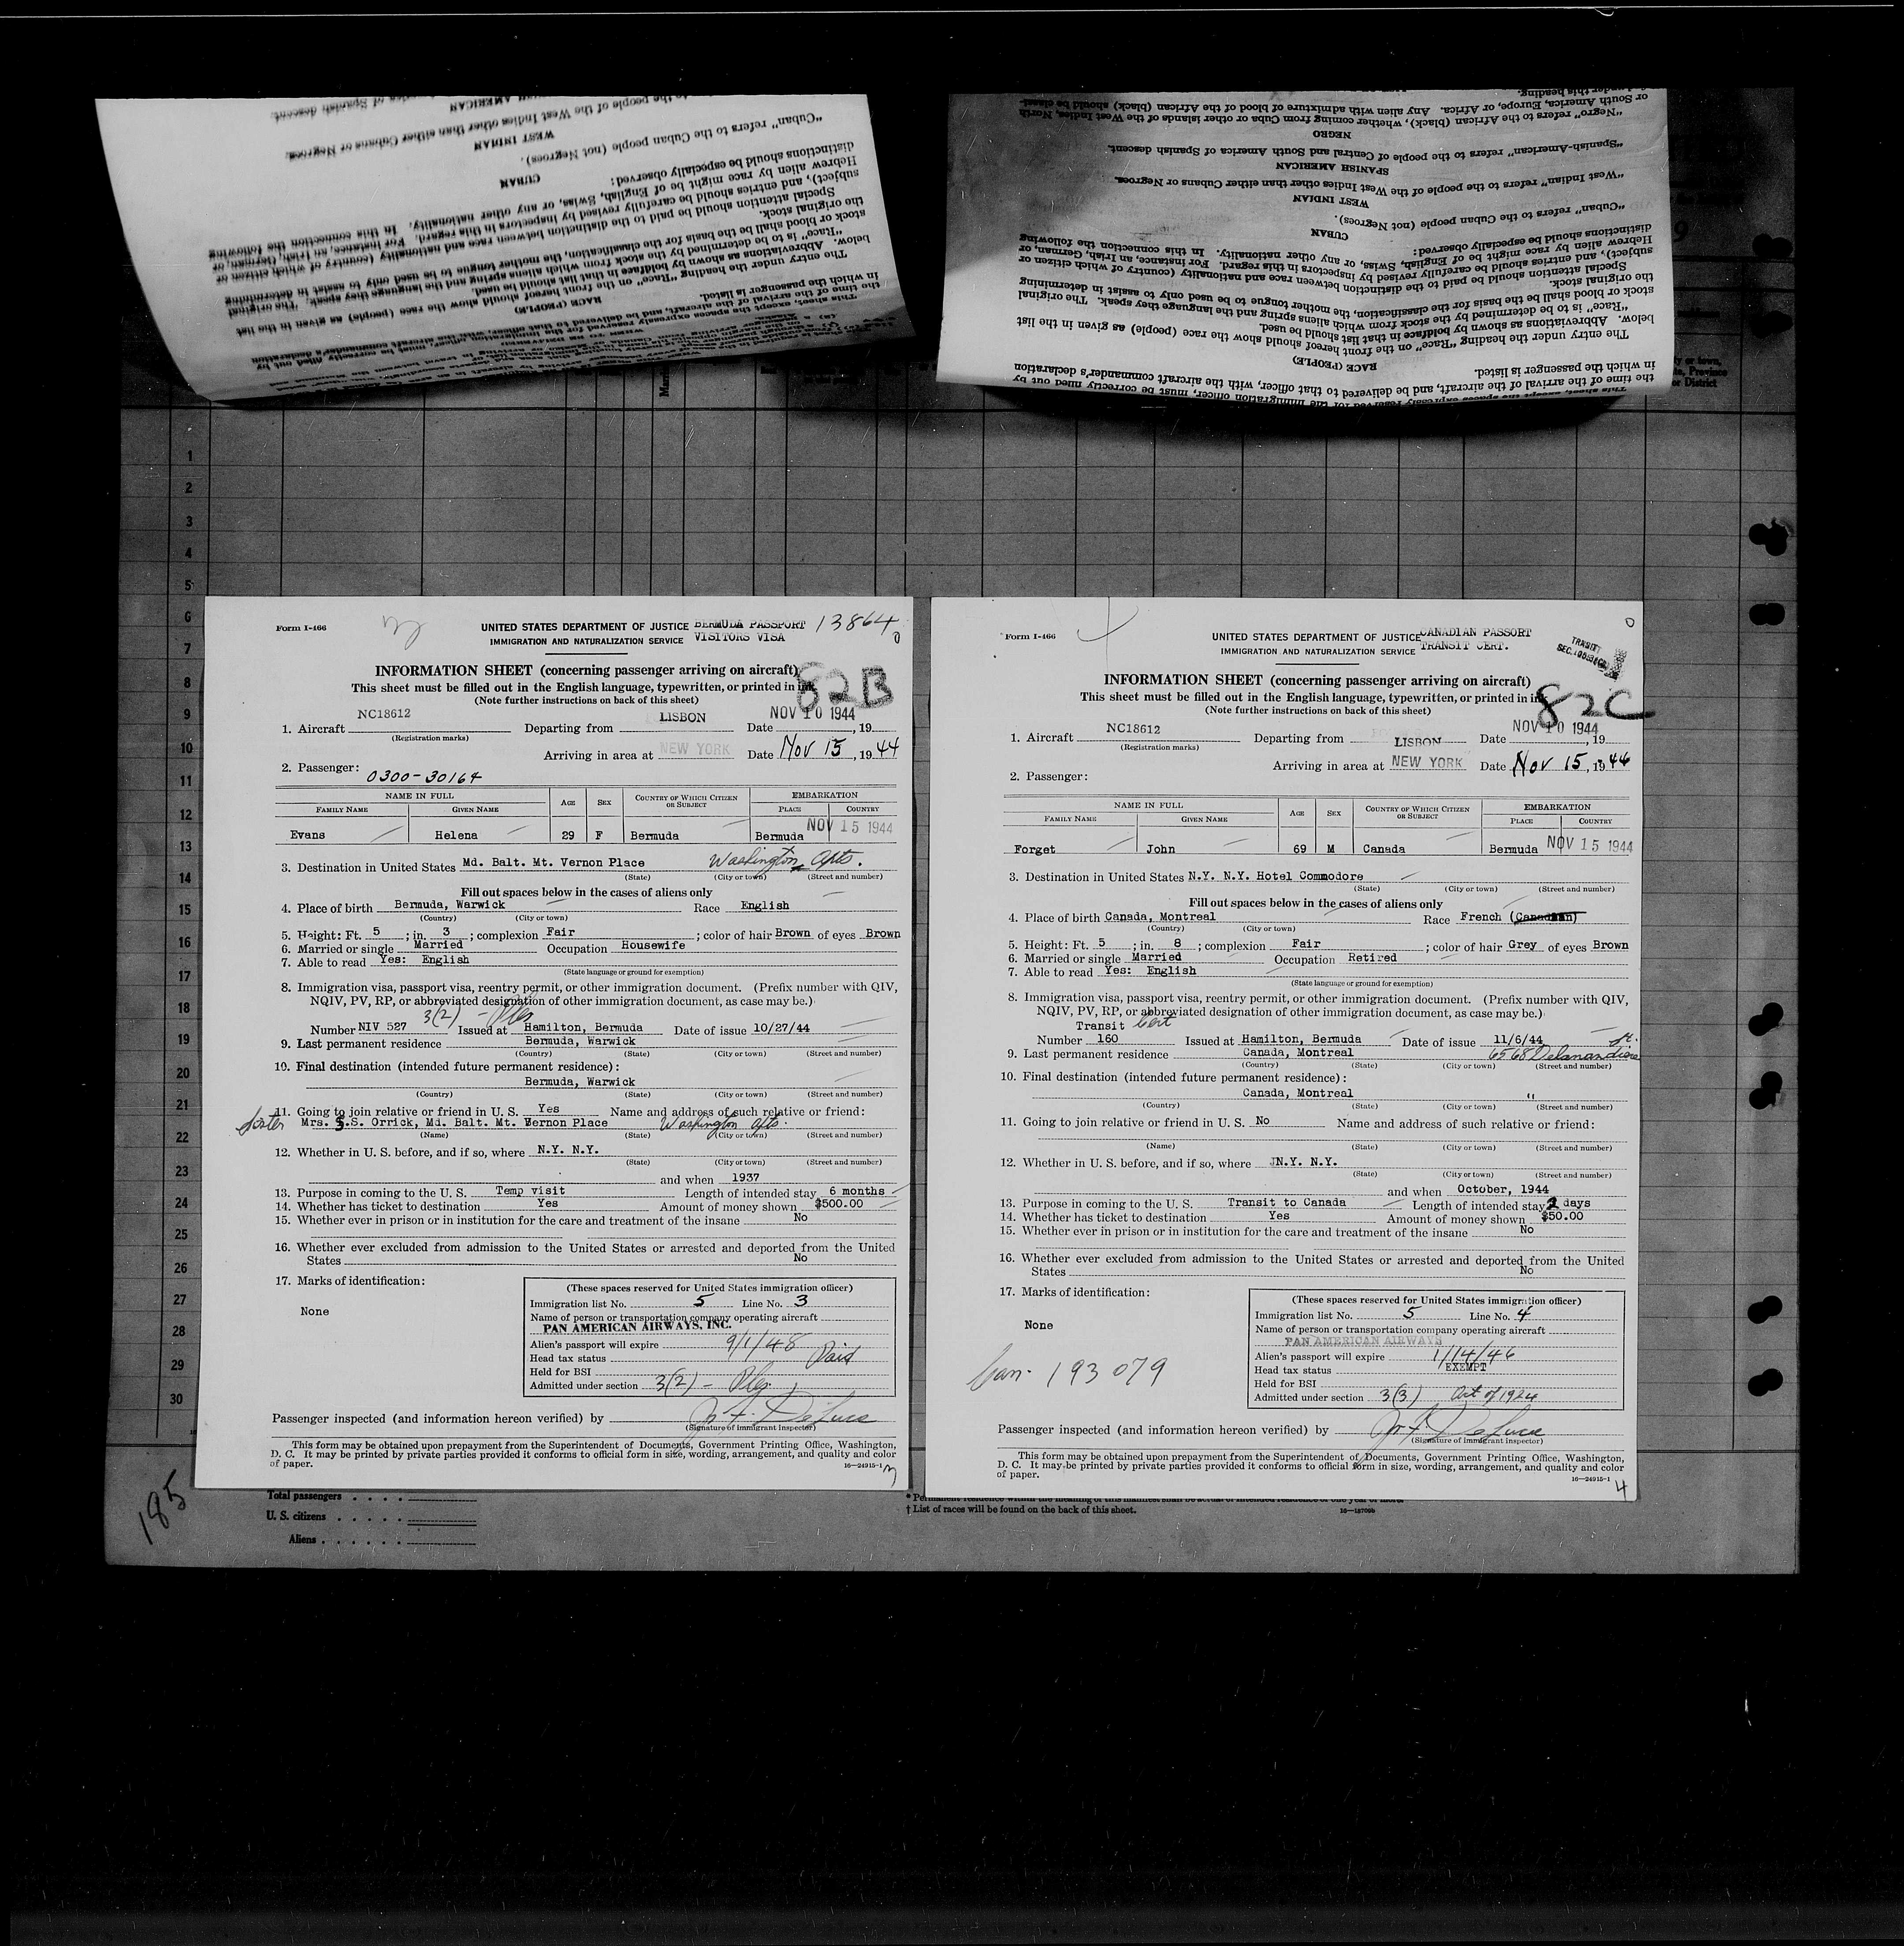 "Cuban" refers to the Cuban people (not Negroes).
WEST INDIAN
"West Indian" refers to the people of the West Indies other than either Cubans or Negroes.
CUBAN
distinctions should be especially observed:
Hebrew alien by race might be of English, Swiss, or any other nationality. In this connection the following
subject), and entries should be carefully revised by inspectors in this regard. For instance, an Irish, German, or
Special attention should be paid to the distinction between race and nationality (country of which citizen or
the original stock.
stock or blood shall be the basis for the classification, the mother tongue to be used only to assist in determining
"Race" is to be determined by the stock from which aliens spring and the language they speak. The original
below. Abbreviations as shown by boldface in that list should be used.
The entry under the heading "Race" on the front hereof should show the race (people) as given in the list
RACE (PEOPLE)
in which the passenger is listed.
the time of the arrival of the aircraft, and be delivered to that officer, with the aircraft commander's declaration
under this heading.
or South America, Europe, or Africa. Any alien with admixture of blood of the African (black) should be classi-
"Negro" refers to the African (black), whether coming from Cuba or other islands of the West Indies, North
NEGRO
"Spanish-American" refers to the people of Central and South America of Spanish descent.
SPANISH AMERICAN
"West Indian" refers to the people of the West Indies other than either Cubans or Negroes.
WEST INDIAN
"Cuban" refers to the Cuban people (not Negroes).
CUBAN
distinctions should be especially observed:
Hebrew alien by race might be of English, Swiss, or any other nationality. In this connection the following
subject), and entries should be carefully revised by inspectors in this regard. For instance, an Irish, German, or
Special attention should be paid to the distinction between race and nationality (country of which citizen or
the original stock.
stock or blood shall be the basis for the classification, the mother tongue to be used only to assist in determining
"Race" is to be determined by the stock from which aliens spring and the language they speak. The original
below. Abbreviations as shown by boldface in that list should be used.
The entry under the heading "Race" on the front hereof should show the race (people) as given in the list
RACE (PEOPLE)
in which the passenger is listed.
the time of the arrival of the aircraft, and be delivered to that officer, with the aircraft commander's declaration
This sheet, except the spaces expressly reserved for the immigration officer, must be correctly filled out by
1
2
3
4
5
6
7
8
9
10
11
12
13
14
15
16
17
18
19
20
21
22
23
24
25
26
27
28
29
30
Form I-466
UNITED STATES DEPARTMENT OF JUSTICE BERMUDA PASSPORT 13864
IMMIGRATION AND NATURALIZATION SERVICE VISITORS VISA
INFORMATION SHEET (concerning passenger arriving on aircraft)
82B
This sheet must be filled out in the English language, typewritten, or printed in ink
(Note further instructions on back of this sheet)
1. Aircraft NC18612 Departing from LISBON Date NOV 10 1944, 19
(Registration marks)
Arriving in area at NEW YORK Date Nov 15, 1944
2. Passenger: 0300-30164
NAME IN FULL AGE SEX COUNTRY OF WHICH CITIZEN OR SUBJECT EMBARKATION
FAMILY NAME GIVEN NAME PLACE COUNTRY
Evans Helena 29 F Bermuda Bermuda NOV 15 1944
3. Destination in United States Md. Balt. Mt. Vernon Place Washington Apts.
(State) (City or town) (Street and number)
Fill out spaces below in the cases of aliens only
4. Place of birth Bermuda, Warwick Race English
(Country) (City or town)
5. Height: Ft. 5; in. 3; complexion Fair; color of hair Brown of eyes Brown
6. Married or single Married Occupation Housewife
7. Able to read Yes: English
(State language or ground for exemption)
8. Immigration visa, passport visa, reentry permit, or other immigration document. (Prefix number with QIV,
NQIV, PV, RP, or abbreviated designation of other immigration document, as case may be.)
3(2) -
Number NIV 527 Issued at Hamilton, Bermuda Date of issue 10/27/44
9. Last permanent residence Bermuda, Warwick
(Country) (State) (City or town) (Street and number)
10. Final destination (intended future permanent residence):
Bermuda, Warwick
(Country) (State) (City or town) (Street and number)
11. Going to join relative or friend in U. S. Yes Name and address of such relative or friend:
Mrs. S.S. Orrick, Md. Balt. Mt. Vernon Place Washington Apts.
(Name) (State) (City or town) (Street and number)
12. Whether in U. S. before, and if so, where N.Y. N.Y.
(State) (City or town) (Street and number)
and when 1937
13. Purpose in coming to the U. S. Temp visit Length of intended stay 6 months
14. Whether has ticket to destination Yes Amount of money shown $500.00
15. Whether ever in prison or in institution for the care and treatment of the insane No
16. Whether ever excluded from admission to the United States or arrested and deported from the United
States No
17. Marks of identification:
None
(These spaces reserved for United States immigration officer)
Immigration list No. 5 Line No. 3
Name of person or transportation company operating aircraft
PAN AMERICAN AIRWAYS, INC.
Alien's passport will expire 9/1/48
Head tax status Paid
Held for BSI
Admitted under section 3(2) -
Passenger inspected (and information hereon verified) by
(Signature of immigrant inspector)
This form may be obtained upon prepayment from the Superintendent of Documents, Government Printing Office, Washington,
D. C. It may be printed by private parties provided it conforms to official form in size, wording, arrangement, and quality and color
of paper.
16—24915-1
Form I-466
UNITED STATES DEPARTMENT OF JUSTICE CANADIAN PASSORT
IMMIGRATION AND NATURALIZATION SERVICE TRANSIT CERT.
TRANSIT
INFORMATION SHEET (concerning passenger arriving on aircraft)
82C
This sheet must be filled out in the English language, typewritten, or printed in ink
(Note further instructions on back of this sheet)
1. Aircraft NC18612 Departing from LISBON Date NOV 10 1944, 19
(Registration marks)
Arriving in area at NEW YORK Date Nov 15, 1944
2. Passenger:
NAME IN FULL AGE SEX COUNTRY OF WHICH CITIZEN OR SUBJECT EMBARKATION
FAMILY NAME GIVEN NAME PLACE COUNTRY
Forget John 69 M Canada Bermuda NOV 15 1944
3. Destination in United States N.Y. N.Y. Hotel Commodore
(State) (City or town) (Street and number)
Fill out spaces below in the cases of aliens only
4. Place of birth Canada, Montreal Race French (Canadian)
(Country) (City or town)
5. Height: Ft. 5; in. 8; complexion Fair; color of hair Grey of eyes Brown
6. Married or single Married Occupation Retired
7. Able to read Yes: English
(State language or ground for exemption)
8. Immigration visa, passport visa, reentry permit, or other immigration document. (Prefix number with QIV,
NQIV, PV, RP, or abbreviated designation of other immigration document, as case may be.)
Transit Cert
Number 160 Issued at Hamilton, Bermuda Date of issue 11/6/44
9. Last permanent residence Canada, Montreal 6568
(Country) (State) (City or town) (Street and number)
10. Final destination (intended future permanent residence):
Canada, Montreal "
(Country) (State) (City or town) (Street and number)
11. Going to join relative or friend in U. S. No Name and address of such relative or friend:
(Name) (State) (City or town) (Street and number)
12. Whether in U. S. before, and if so, where N.Y. N.Y.
(State) (City or town) (Street and number)
and when October, 1944
13. Purpose in coming to the U. S. Transit to Canada Length of intended stay 2 days
14. Whether has ticket to destination Yes Amount of money shown $50.00
15. Whether ever in prison or in institution for the care and treatment of the insane No
16. Whether ever excluded from admission to the United States or arrested and deported from the United
States No
17. Marks of identification:
None
Can. 193079
(These spaces reserved for United States immigration officer)
Immigration list No. 5 Line No. 4
Name of person or transportation company operating aircraft
PAN AMERICAN AIRWAYS
Alien's passport will expire 1/14/46
Head tax status EXEMPT
Held for BSI
Admitted under section 3(3) Act of 1924
Passenger inspected (and information hereon verified) by
(Signature of immigrant inspector)
This form may be obtained upon prepayment from the Superintendent of Documents, Government Printing Office, Washington,
D. C. It may be printed by private parties provided it conforms to official form in size, wording, arrangement, and quality and color
of paper.
16—24915-1
4
185
Total passengers
U. S. citizens
Aliens
† List of races will be found on the back of this sheet.